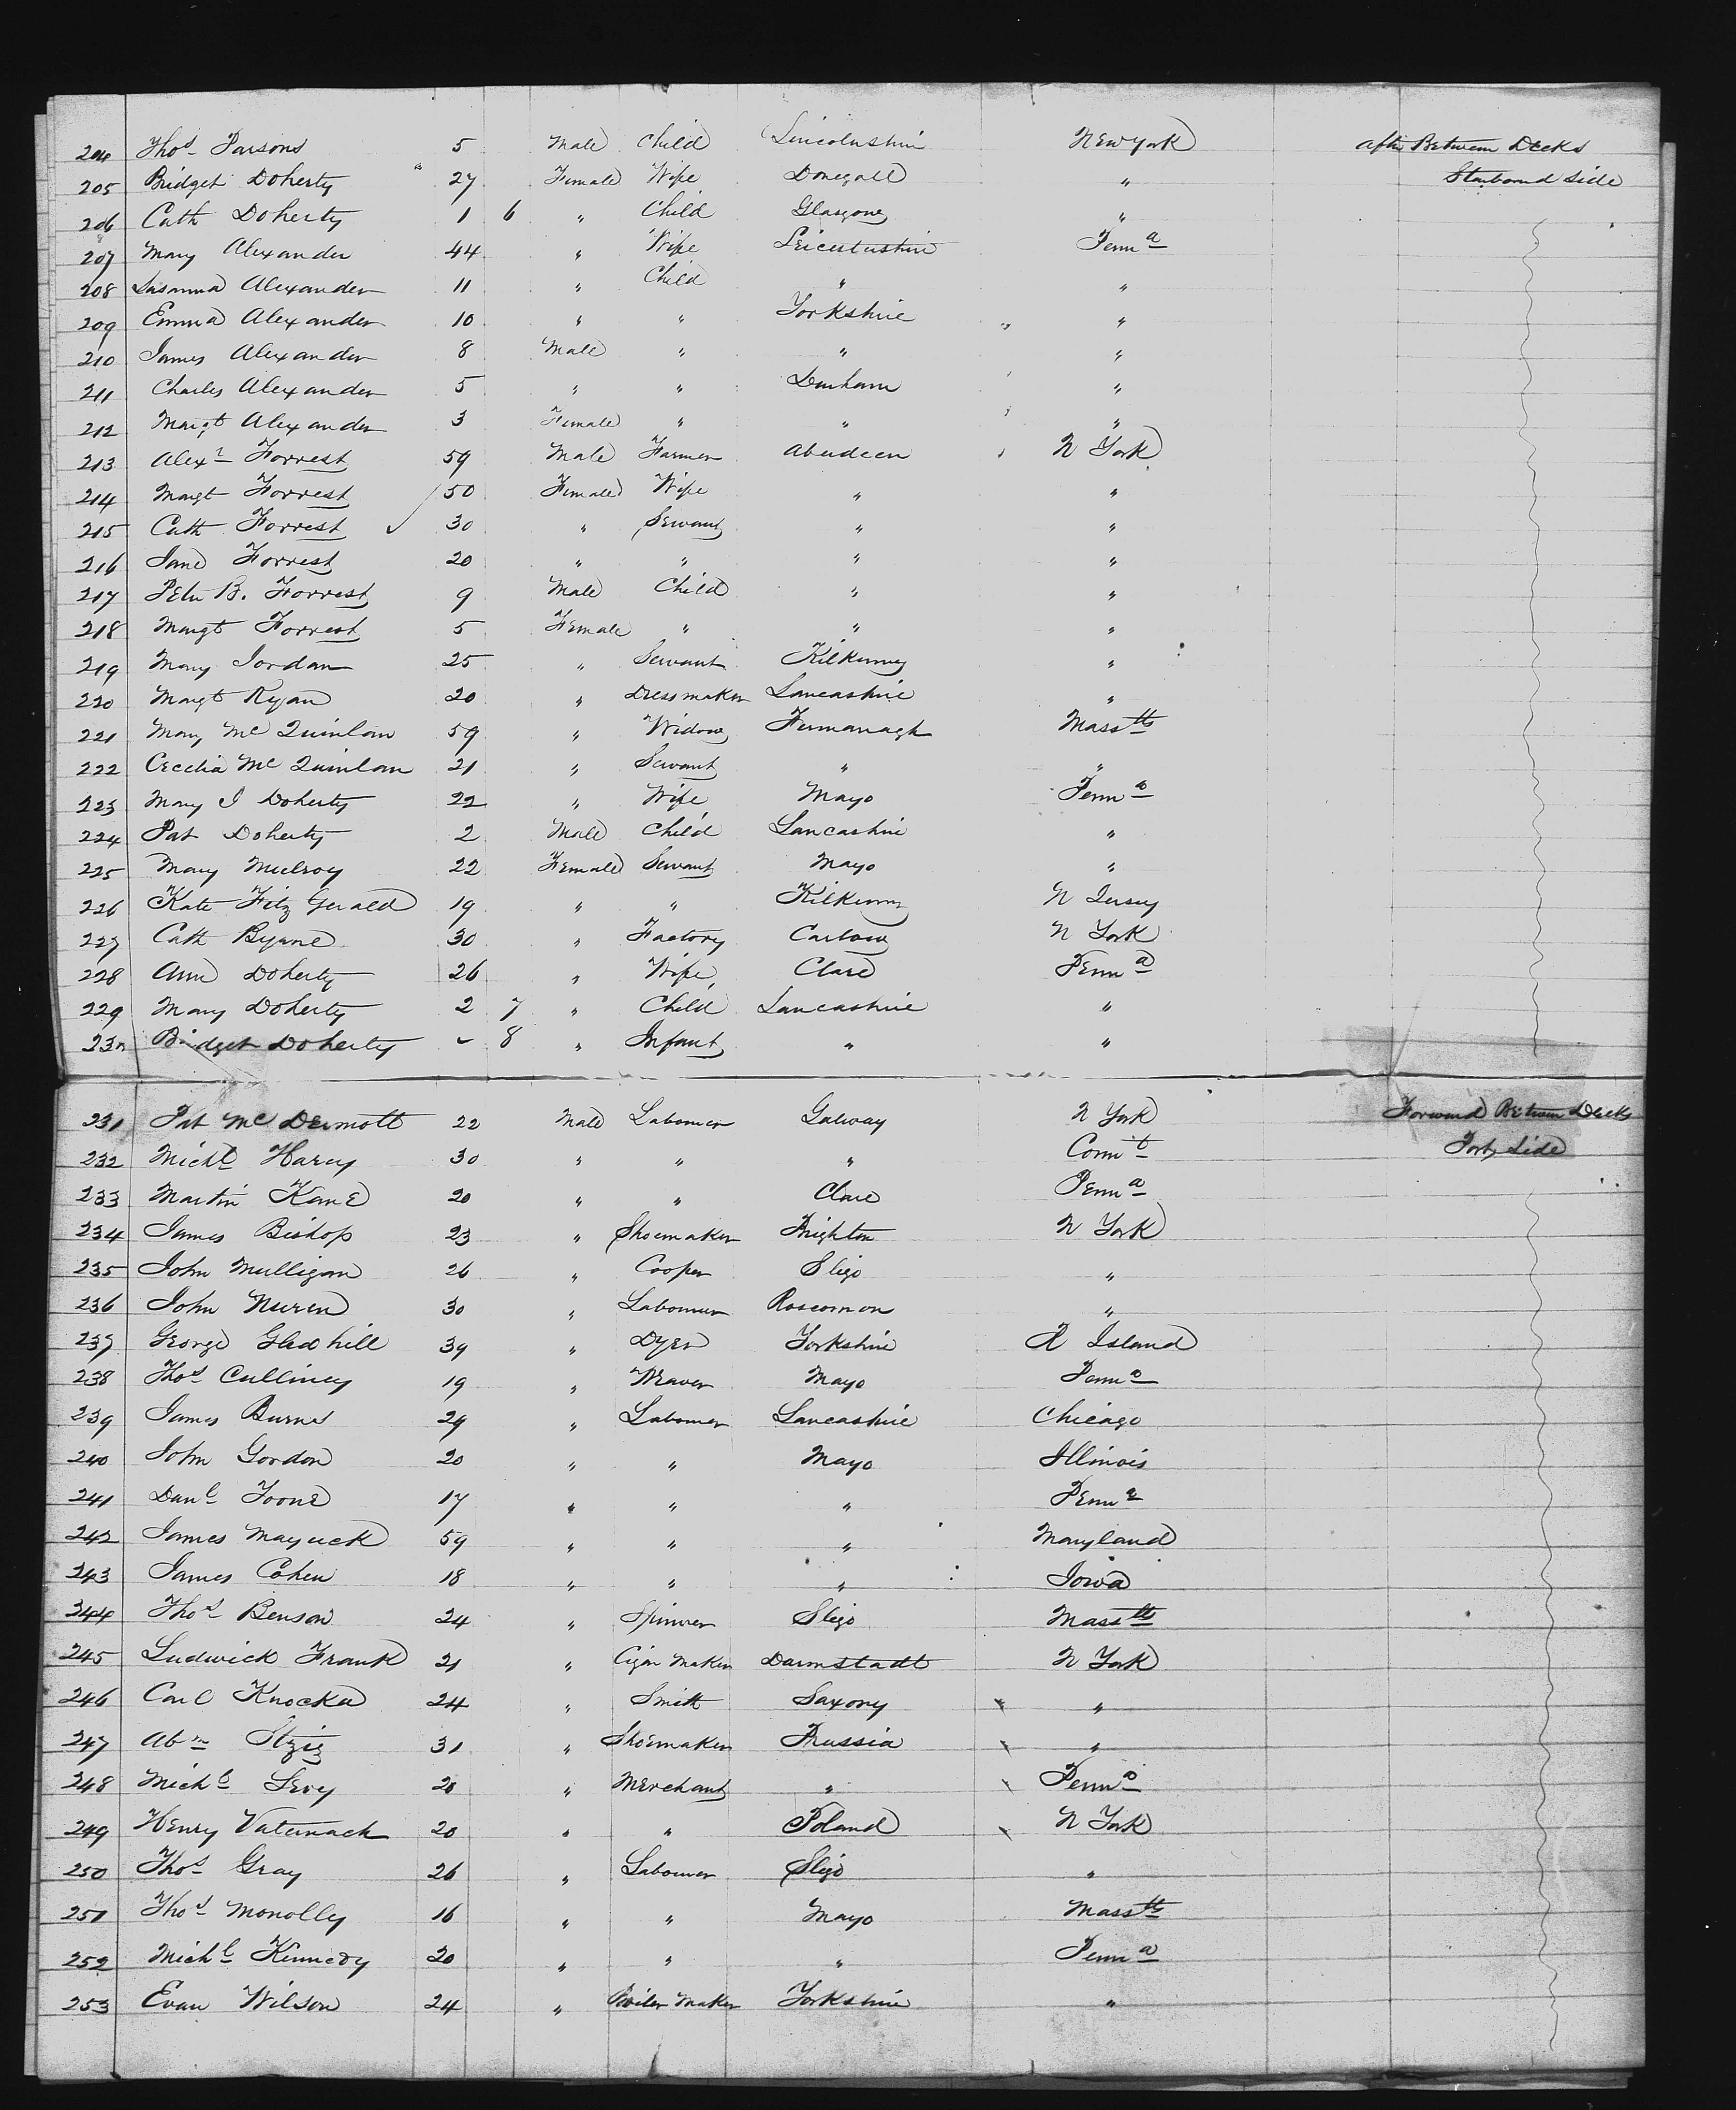 204 Thos Parsons 5 Male Child Lincolnshire New York After Between Decks
205 Bridget Doherty 27 Female Wife Donegall " Starboard Side
206 Cath Doherty 1 6 " Child Glasgow "
207 Mary Alexander 44 " Wife Leicestershire Penna
208 Susanna Alexander 11 " Child " "
209 Emma Alexander 10 " " Yorkshire "
210 James Alexander 8 Male " " "
211 Charles Alexander 5 " " Durham "
212 Margt Alexander 3 Female " " "
213 Alexr Forrest 59 Male Farmer Aberdeen N York
214 Margt Forrest 50 Female Wife " "
215 Cath Forrest 30 " Servant " "
216 Jane Forrest 20 " " " "
217 Peter B. Forrest 9 Male Child " "
218 Margt Forrest 5 Female " " "
219 Mary Jordan 25 " Servant Kilkenny "
220 Margt Ryan 20 " Dressmaker Lancashire "
221 Mary McQuinlan 59 " Widow Fermanagh Masstts
222 Cecelia McQuinlan 21 " Servant " "
223 Mary J Doherty 22 " Wife Mayo Penna
224 Pat Doherty 2 Male Child Lancashire "
225 Mary Mulroy 22 Female Servant Mayo "
226 Kate Fitz Gerald 19 " " Kilkenny N Jersey
227 Cath Byrne 30 " Factory Carlow N York
228 Ann Doherty 26 " Wife Clare Penna
229 Mary Doherty 2 7 " Child Lancashire "
230 Bridget Doherty 8 " Infant " "
231 Pat McDermott 22 Male Labourer Galway N York Forward Between Decks
232 Michl 30 " " " Connt Port Side
233 Martin Kane 20 " " Clare Penna
234 James Bishop 23 " Shoemaker Brighton N York
235 John Mulligan 26 " Cooper Sligo "
236 John 30 " Labourer Roscomon "
237 George Gledhill 39 " Dyer Yorkshire R Island
238 Thos Culliney 19 " Weaver Mayo Penna
239 James Burns 29 " Labourer Lancashire Chicago
240 John Gordon 20 " " Mayo Illinois
241 Danl Toone 17 " " " Penna
242 James 59 " " " Maryland
243 James Cohen 18 " " " Iowa
244 Thos Benson 24 " Spinner Sligo Masstts
245 Ludwick Frank 21 " Cigar Maker Darmstadt N York
246 Carl Knocka 24 " Smith Saxony "
247 Abm Itzig 31 " Shoemaker Prussia "
248 Michl Levy 20 " Merchant " Penna
249 Henry Vaternack 20 " " Poland N York
250 Thos Gray 26 " Labourer Sligo "
251 Thos Monolly 16 " " Mayo Masstts
252 Michl Kennedy 20 " " " Penna
253 Evan Wilson 24 " Boiler Maker Yorkshire "